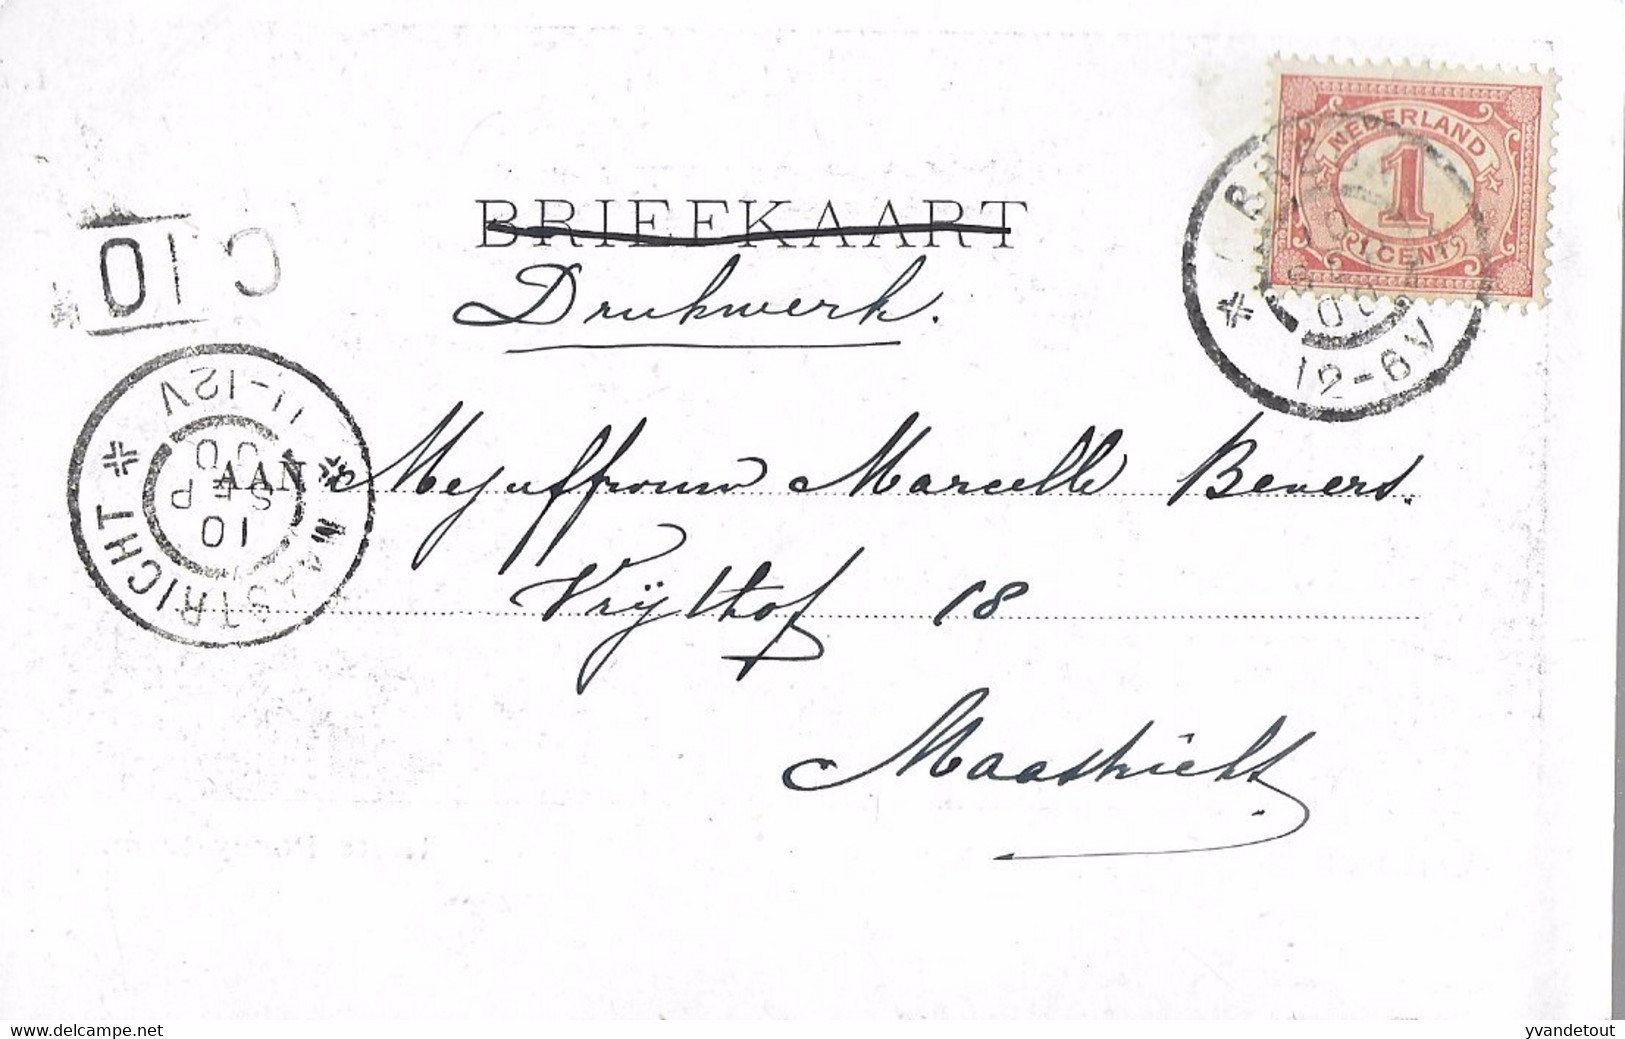 NEDERLAND
1
1 CENT
BREDA
10 SEP 00
12-6V
C 10
BRIEFKAART
Drukwerk.
MAASTRICHT
11-12V
10 SEP 00
AAN Mejuffrouw Marcelle Bevers.
Vrijthof 18
Maastricht
www.delcampe.net
yvandetout